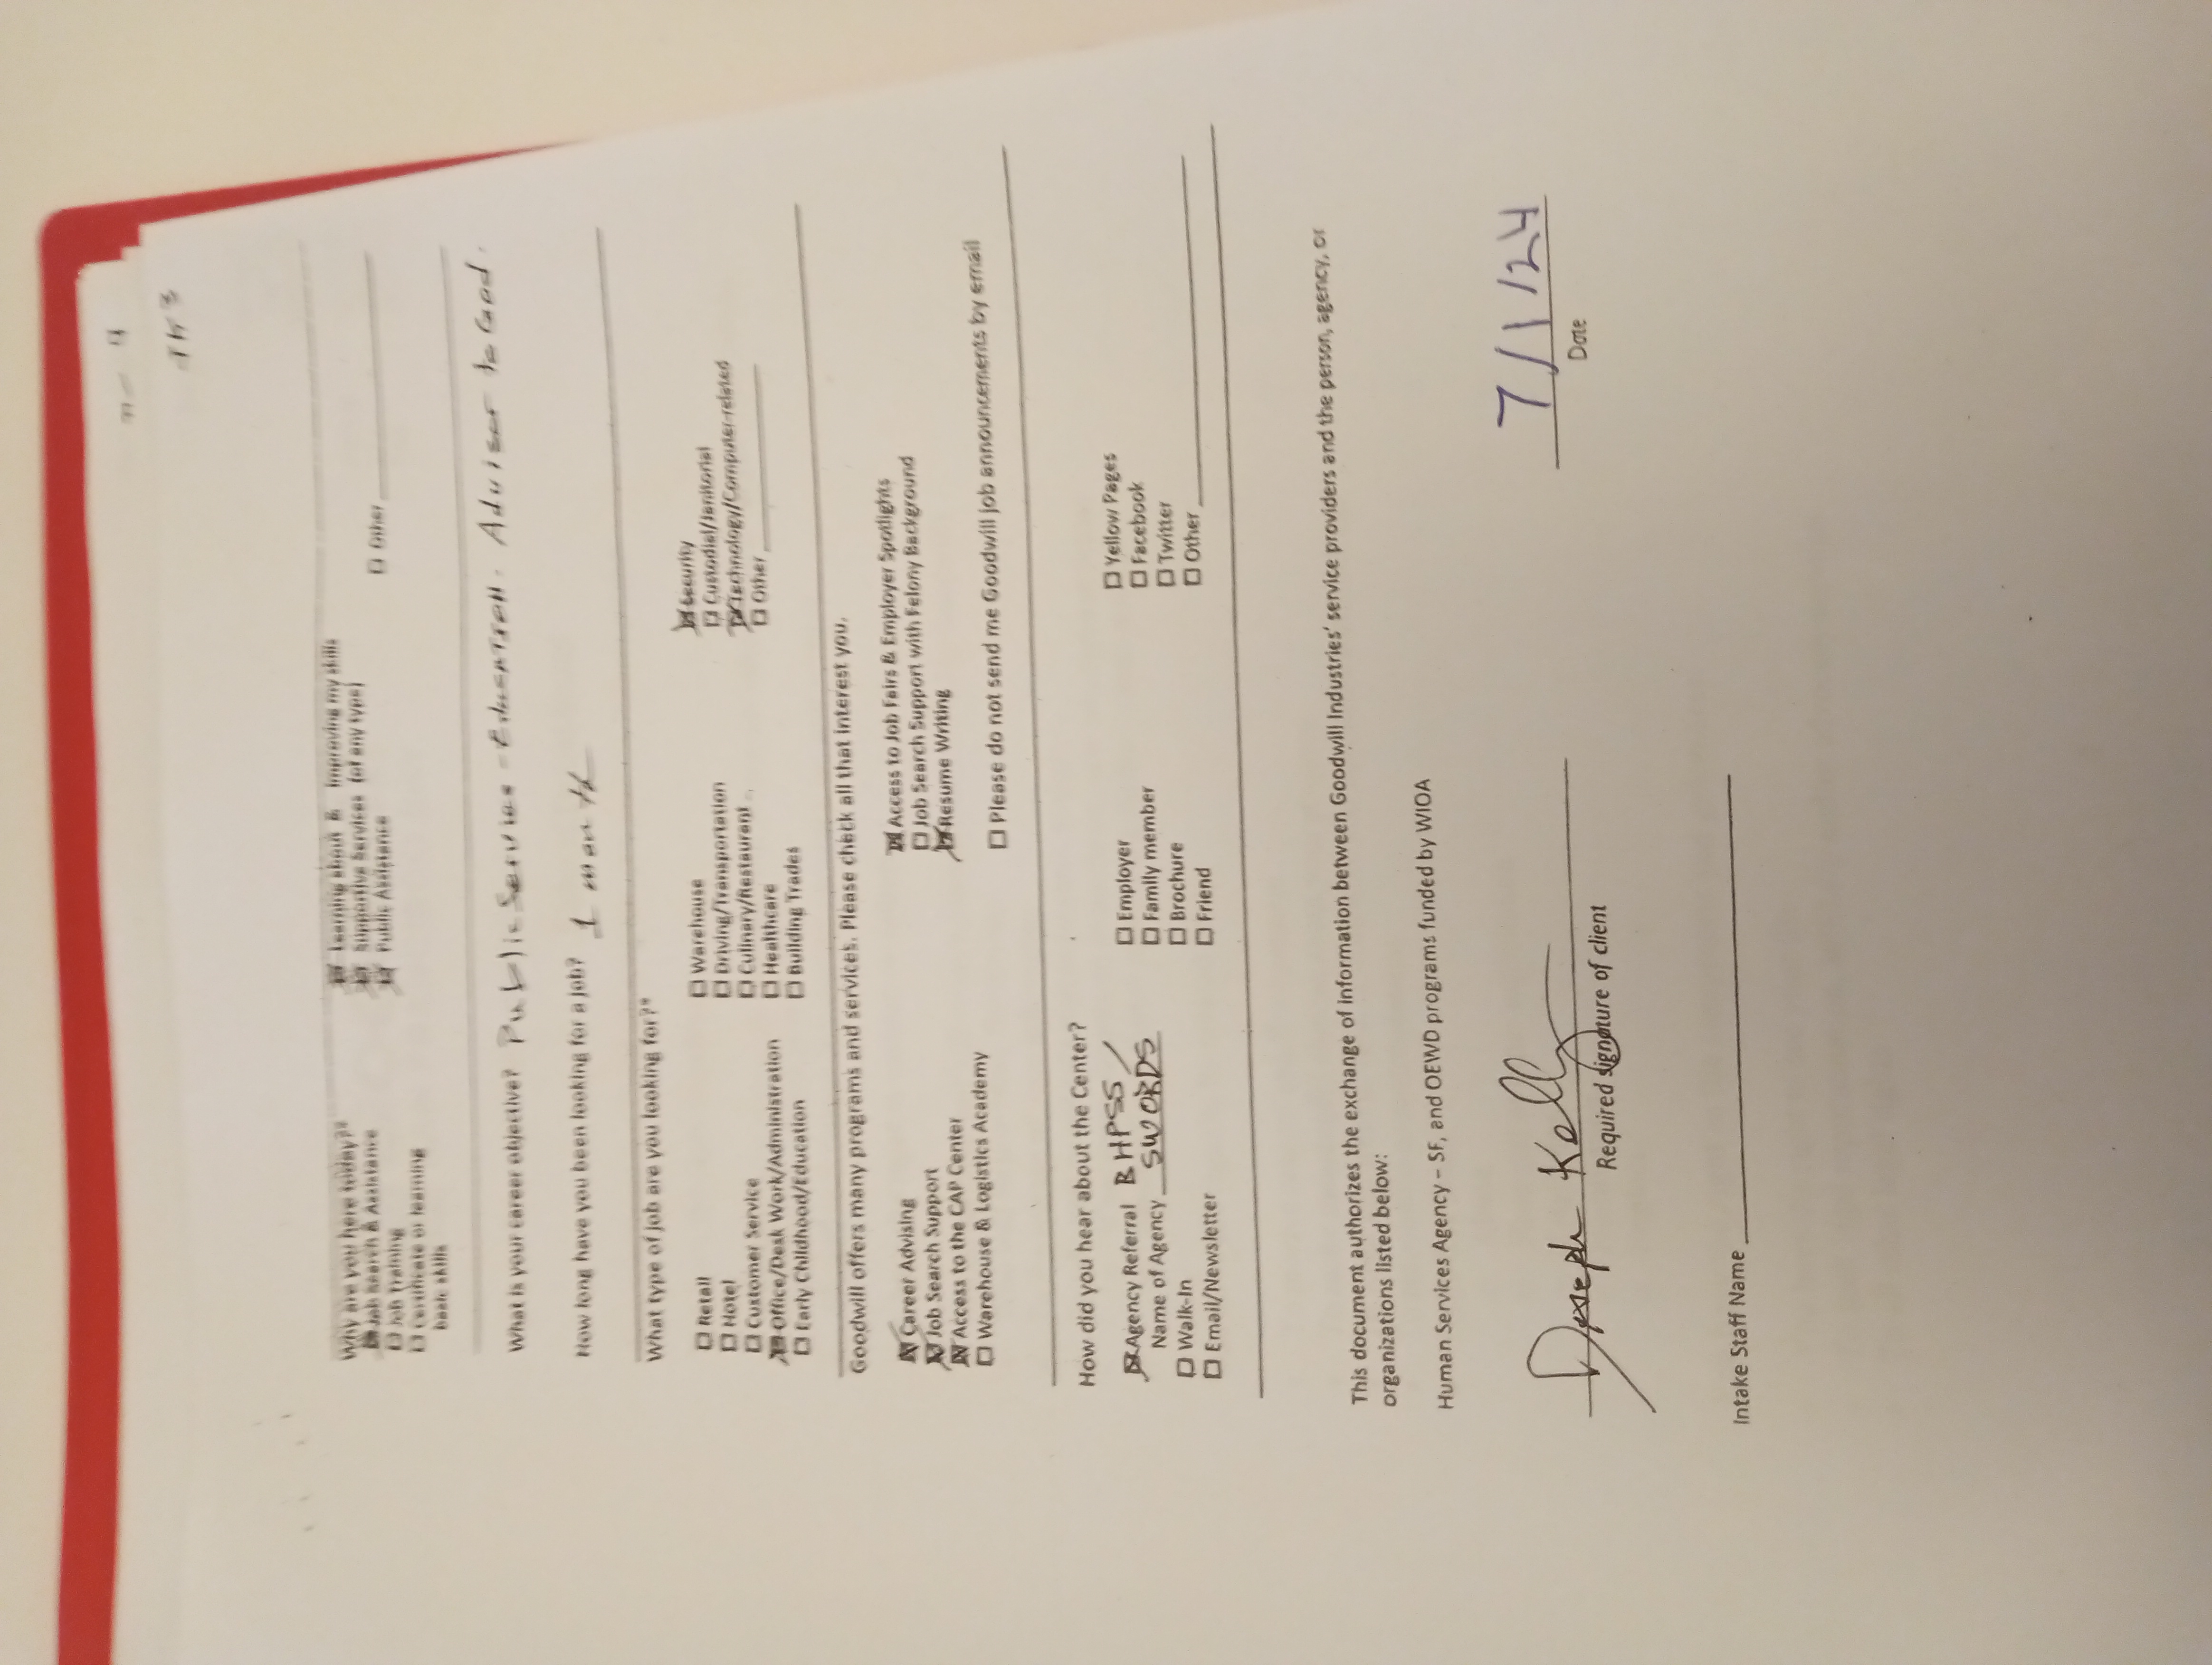 Why are you here today?*
☒ Job Search & Assistance
☐ Job Training
☐ Certificate or learning
basic skills
☒ Learning about & Improving my skills
☒ Supportive Services (of any type)
☒ Public Assistance
☐ Other
What is your career objective? Public Service - Education. Adviser to God.
How long have you been looking for a job? 1 month
What type of job are you looking for?*
☐ Retail
☐ Hotel
☐ Customer Service
☒ Office/Desk Work/Administration
☐ Early Childhood/Education
☐ Warehouse
☐ Driving/Transportation
☐ Culinary/Restaurant
☐ Healthcare
☐ Building Trades
☒ Security
☐ Custodial/Janitorial
☒ Technology/Computer-related
☐ Other
Goodwill offers many programs and services. Please check all that interest you.
☒ Career Advising
☒ Job Search Support
☒ Access to the CAP Center
☐ Warehouse & Logistics Academy
☒ Access to Job Fairs & Employer Spotlights
☐ Job Search Support with Felony Background
☒ Resume Writing
☐ Please do not send me Goodwill job announcements by email
How did you hear about the Center?
☒ Agency Referral BHPSS/
Name of Agency SWORDS
☐ Walk-In
☐ Email/Newsletter
☐ Employer
☐ Family member
☐ Brochure
☐ Friend
☐ Yellow Pages
☐ Facebook
☐ Twitter
☐ Other
This document authorizes the exchange of information between Goodwill Industries' service providers and the person, agency, or
organizations listed below:
Human Services Agency – SF, and OEWD programs funded by WIOA
Joseph Kelly
Required signature of client
7/1/24
Date
Intake Staff Name